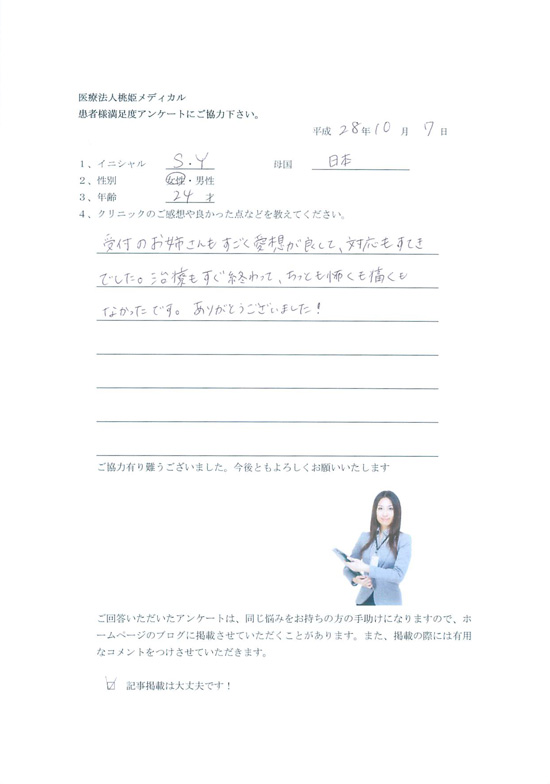 医療法人桃姫メディカル
患者様満足度アンケートにご協力下さい。
平成 28年10 月 7 日
1、イニシャル S.Y 母国 日本
2、性別 女性・男性
3、年齢 24 才
4、クリニックのご感想や良かった点などを教えてください。
受付のお姉さんもすごく愛想が良して、対応もすてき
でした。治療もすぐ終わって、ちっとも怖くも痛くも
なかったです。ありがとうございました！
ご協力有り難うございました。今後ともよろしくお願いいたします
ご回答いただいたアンケートは、同じ悩みをお持ちの方の手助けになりますので、ホ
ームページのブログに掲載させていただくことがあります。また、掲載の際には有用
なコメントをつけさせていただきます。
☑ 記事掲載は大丈夫です！